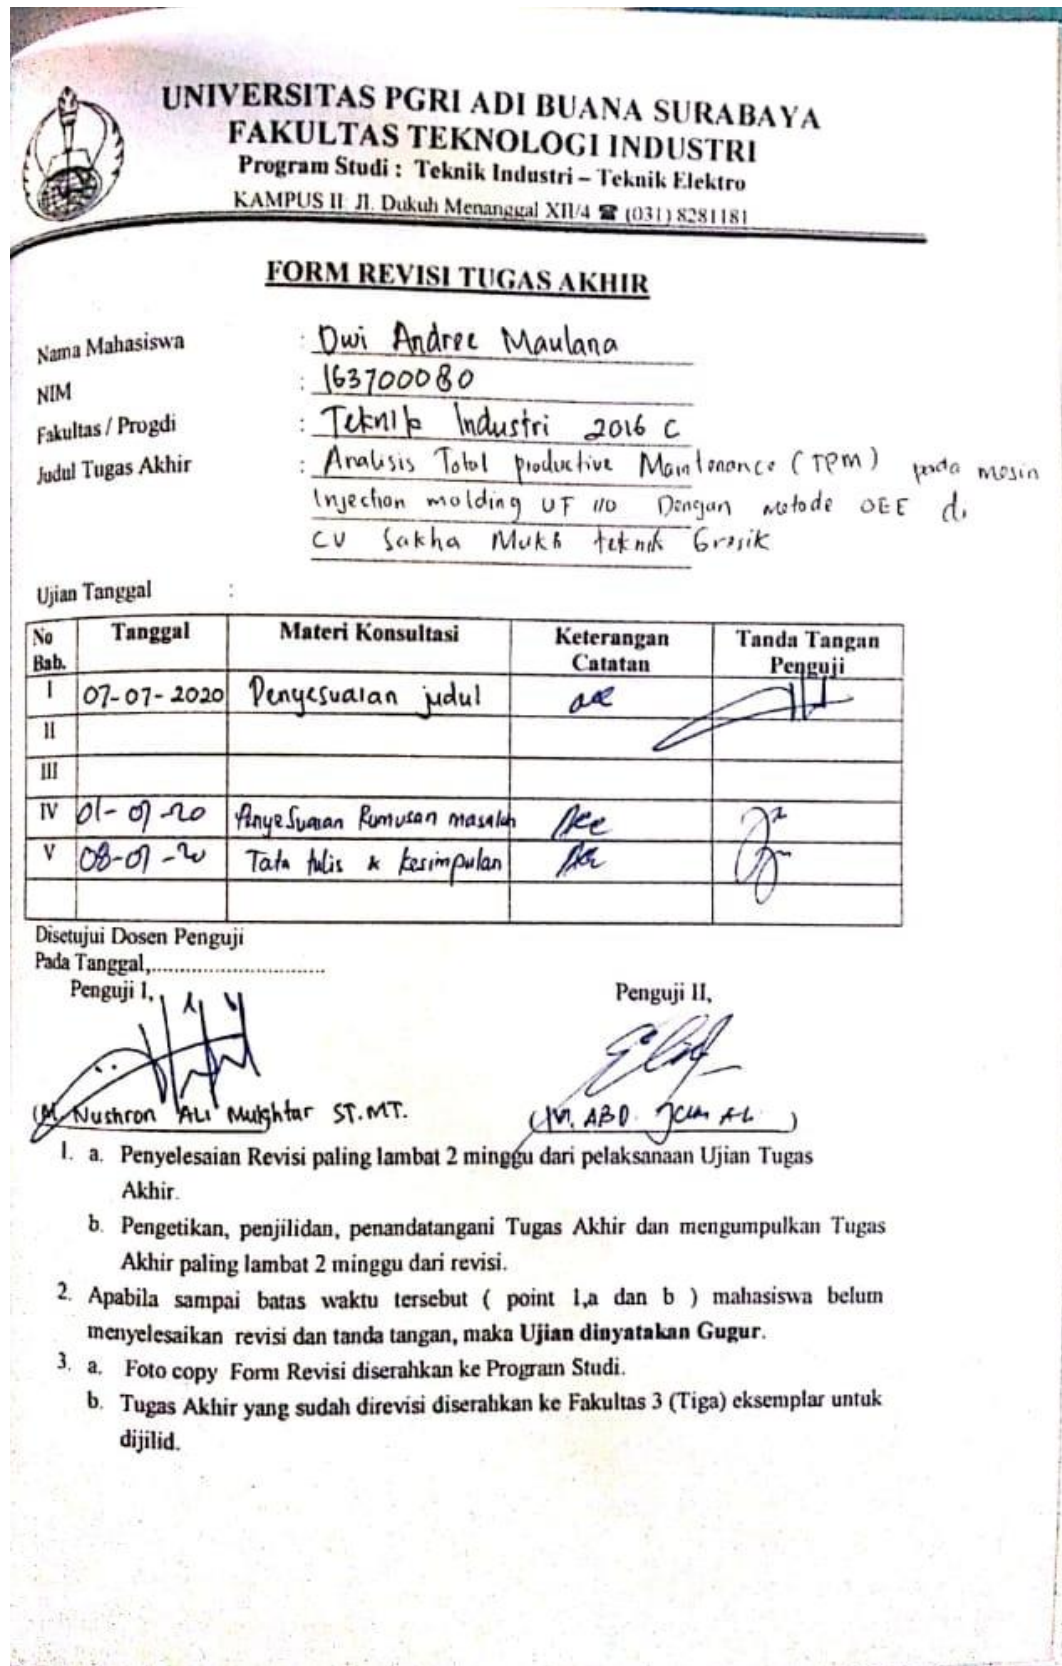 UNIVERSITAS PGRI ADI BUANA SURABAYA
FAKULTAS TEKNOLOGI INDUSTRI
Program Studi : Teknik Industri – Teknik Elektro
KAMPUS II: Jl. Dukuh Menanggal XII/4 ☎ (031) 8281181
FORM REVISI TUGAS AKHIR
Nama Mahasiswa : Dwi Andree Maulana
NIM : 163700080
Fakultas / Progdi : Teknik Industri 2016 C
Judul Tugas Akhir : Analisis Total productive Maintenance (TPM) pada mesin
Injection molding UF 110 Dengan metode OEE di
CV Sakha Mukti teknik Gresik
Ujian Tanggal :
No Bab. Tanggal Materi Konsultasi Keterangan Catatan Tanda Tangan Penguji
I 07-07-2020 Penyesuaian judul acc
II
III
IV 01-07-20 Penyesuaian Rumusan masalah Acc
V 08-07-20 Tata tulis & kesimpulan Acc
Disetujui Dosen Penguji
Pada Tanggal,..............................
Penguji I, Penguji II,
(M. Nushron ALI Mukhtar ST.MT. (M. ABD. )
1. a. Penyelesaian Revisi paling lambat 2 minggu dari pelaksanaan Ujian Tugas
Akhir.
b. Pengetikan, penjilidan, penandatangani Tugas Akhir dan mengumpulkan Tugas
Akhir paling lambat 2 minggu dari revisi.
2. Apabila sampai batas waktu tersebut ( point 1,a dan b ) mahasiswa belum
menyelesaikan revisi dan tanda tangan, maka Ujian dinyatakan Gugur.
3. a. Foto copy Form Revisi diserahkan ke Program Studi.
b. Tugas Akhir yang sudah direvisi diserahkan ke Fakultas 3 (Tiga) eksemplar untuk
dijilid.